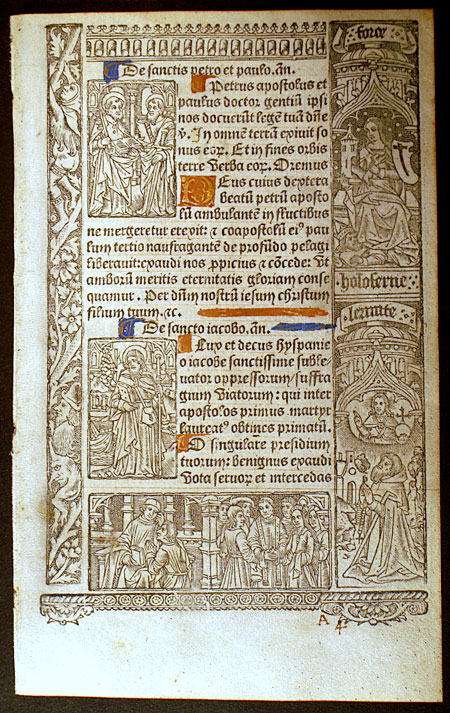 De sanctis petro et paulo. añ.
Petrus apostolus et
paulus doctor gentiũ ipsi
nos docuerũt legẽ tuã dñe
ṽ. In omnẽ terrã exivit so
nus eorꝝ. Et in fines orbis
terre verba eorꝝ. Oremus
Deus cuius dextera
beatũ petrũ aposto
lũ ambulantẽ in fluctibus
ne mergeretur erexit: ⁊ coapostolũ eiꝰ pau
lum tertio naufragantẽ de profũdo pelagi
liberavit: exaudi nos ꝓpicius ⁊ cõcede: vt
amborũ meritis eternitatis gloriam conse
quamur. Per dñm nostrũ iesum christum
filium tuum. ⁊c.
De sancto iacobo. añ.
Lux et decus hyspanie
o iacobe sanctissime suble
vator oppressorum: suffra
gium viatorum: qui inter
apostolos primus martyr
laureatꝰ obtines primatũ.
O singulare presidium
tuorum: benignus exaudi
vota servorꝝ et intercedas
force
holoferne
lermite
A